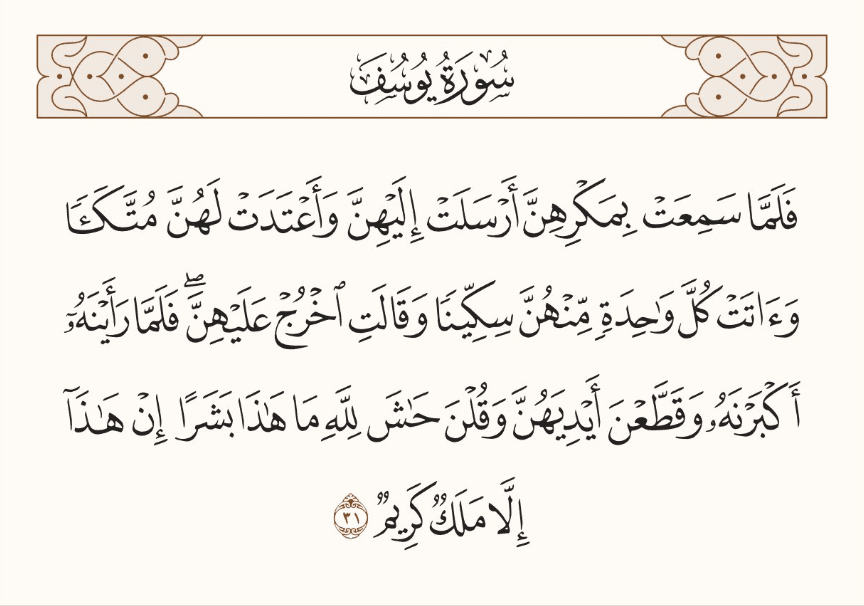 سُورَةُ يُوسُفَ
فَلَمَّا سَمِعَتْ بِمَكْرِهِنَّ أَرْسَلَتْ إِلَيْهِنَّ وَأَعْتَدَتْ لَهُنَّ مُتَّكَـًٔا
وَءَاتَتْ كُلَّ وَٰحِدَةٍ مِّنْهُنَّ سِكِّينًا وَقَالَتِ ٱخْرُجْ عَلَيْهِنَّ ۖ فَلَمَّا رَأَيْنَهُۥٓ
أَكْبَرْنَهُۥ وَقَطَّعْنَ أَيْدِيَهُنَّ وَقُلْنَ حَـٰشَ لِلَّهِ مَا هَـٰذَا بَشَرًا إِنْ هَـٰذَآ
إِلَّا مَلَكٌ كَرِيمٌ ٣١